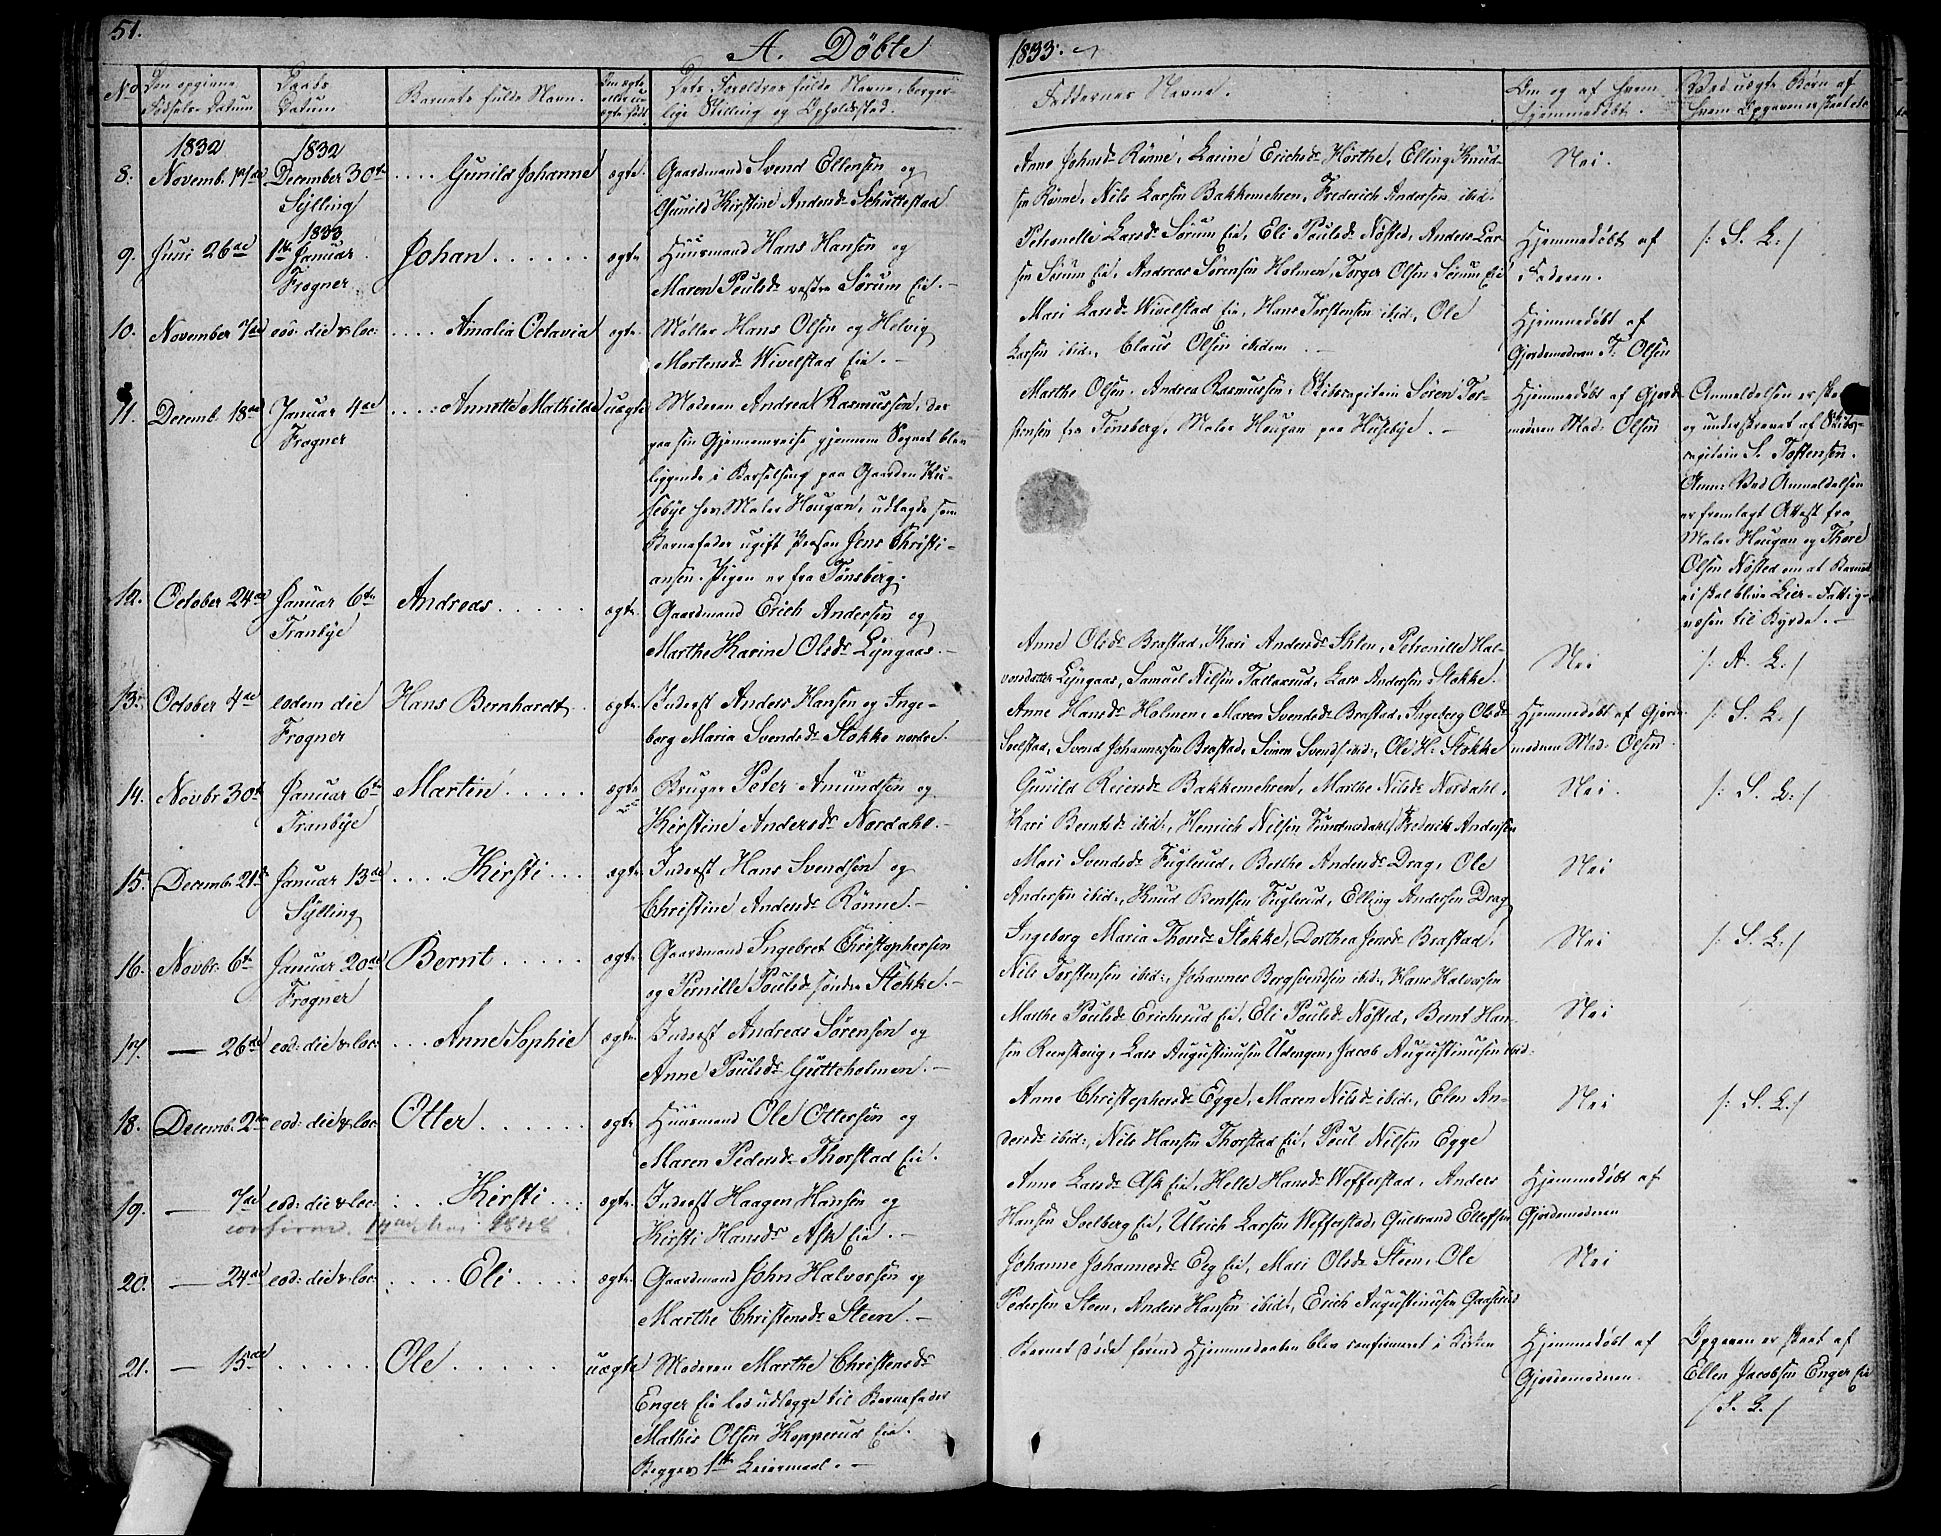 51.
A. Döbte
1833.
No
Den opgivne Fødsels Datum
Daabs Datum
Barnets fulde Navn.
Om ægte eller uægte født
Dets Foreldres fulde Navne, borgerlige Stilling og Opholdsted.
Faddernes Navne.
Om og af hvem hjemmedøbt.
Ved uægte Børn af hvem Opgaven er skeet
8.
1832
Novemb. 14de
1832
December 30te
Sylling
Gunild Johanne
ægte.
Gaardmand Svend Ellensen og
Gunild Kirstine Andersdr Schuttestad
Anne Johnsdr Rönne, Karine Erichsdr Hörthe, Elling Knud-
sen Rönne, Nils Larsen Bakkemehren, Frederich Andersen ibid.
Nei.
9.
Juni 26de
1833
1te Januar
Frogner
Johan
ægte
Huusmand Hans Hansen og
Maren Poulsdr vestre Sörum Eie.
Petronelle Larsdr Sörum Eie, Eli Poulsdr Nösted, Anders Lar-
sen Sörum Eie, Andreas Sörensen Holmen, Torger Olsen Sörum Eie
Hjemmedöbt af
Faderen.
/: S. L: /
10.
November 7de
eod: die & loc:
Amalia Octavia
ægte
Möller Hans Olsen og Helvig
Mortensdr Wivelstad Eie.
Mari Larsdr Wivelstad Eie, Hans Torstensen ibid:, Ole
Larsen ibid:, Claus Olsen ibidem
Hjemmedöbt af
Gjordemoderen T. Olsen
11.
Decemb. 18de
Januar 4de
Frogner
Annette Mathilde
uægte
Moderen Andrea Rasmussen, der
paa sin Gjennemreise gjennem Sognet blev
liggende i Barselseng paa Gaarden Hu-
sebye hos Maler Hougan, udlagde som
Barnefader ugift Person Jens Christi-
ansen. Pigen er fra Tönsberg.
Marthe Olsen, Andrea Rasmussen, Skibscapitain Sören Tor-
stensen fra Tönsberg, Maler Hougan paa Husebye.
Hjemmedöbt af Gjorde
moderen Mad: Olsen
Anmeldelsen er skeet
og underskrevet af Skibs-
capitain S. Tostensen.
Anm: Ved Anmeldelsen
er fremlagt Attest fra
Maler Hougan og Thore
Olsen Nösted om at Barnet
ei skal blive Lier-Fattig-
væsen til Byrde.
12.
October 24de
Januar 6te
Tranbÿe
Andreas
ægte
Gaardmand Erich Andersen og
Marthe Karine Olsdr Lÿngaas.
Anne Olsdr Brastad, Kari Andersdr Ihlen, Petronille Hal-
vorsdatter Lÿngaas, Samuel Nilsen Tallaxrud, Lars Andersen Stokke.
Nei
/: A. L: /
13.
October 4de
eodem die
Frogner
Hans Bernhardt
ægte
Inderst Anders Hansen og Inge-
borg Maria Svendsdr Stokke nordre.
Anne Hansdr Holmen, Maren Svendsdr Brastad, Ingeborg Olsdr
Soelstad, Svend Johannesen Brastad, Simen Svends ibid:, Ole H: Stokke
Hjemmedöbt af Gjorde-
moderen Mad: Olsen
/: S. L: /
14.
Novbr 30te
Januar 6te
Tranbÿe
Martin
ægte
Bruger Peter Amundsen og
Kirstine Andersdr Nordahl.
Gunild Reiersdr Bakkemehren, Marthe Nilsdr Nordahl,
Kari Berntsdr ibid:, Henrich Nilsen Tuverudsdahl, Frederik Andersen
Nei.
/: S. L: /
15.
Decemb. 21de
Januar 13de
Sÿlling
Kirsti
ægte
Inderst Hans Svendsen og
Christine Andersdr Rönne.
Mari Svendsdr Fuglerud, Berthe Andersdr Drag, Ole
Andersen ibid:, Knud Berntsen Fuglerud, Elling Andersen Drag
Nei
16.
Novbr. 6te
Januar 20de
Frogner
Bernt
ægte
Gaardmand Ingebret Christophersen
og Pernille Poulsdr söndre Stokke.
Ingeborg Maria Thorsdr Stokke, Dorthea Jensdr Brastad,
Nils Torstensen ibid:, Johannes Bergsvendsen ibid:, Hans Halvorsen
Nei
/: S. L: /
17.
— 26de
eod: die & loc:
Anne Sophie
ægte
Inderst Andreas Sörensen og
Anne Poulsdr Gutteholmen.
Marthe Poulsdr Erichsrud Eie, Eli Poulsdr Nösted, Bernt Han-
sen Reenskoug, Lars Augustinusen Udengen, Jacob Augustinusen ibid:
Nei
18.
Decemb. 2den
eod: die & loc:
Otter
ægte
Huusmand Ole Ottersen og
Maren Pedersdr Thorstad Eie.
Anne Christophersdr Egge, Maren Nilsdr ibid:, Elen An-
dersdr ibid:, Nils Hansen Thorstad Eie, Poul Nilsen Egge
Nei
/: S. L: /
19.
— 7de
eod: die & loc:
Kirsti
ægte
Inderst Haagen Hansen og
Kirsti Hansdr Ask Eie.
Anne Larsdr Ask Eie, Helle Hansdr Wefferstad, Anders
Hansen Soelberg Eie, Ulrich Larsen Wefferstad, Gulbrand Ellefsen
Hjemmedöbt af
Gjordemoderen
20.
— 24de
eod: die & loc:
Eli
ægte
Gaardmand John Halvorsen og
Marthe Christensdr Steen.
Johanne Johannesdr Eeg Eie, Mari Olsdr Steen, Ole
Pedersen Steen, Anders Hansen ibid:, Erich Augustinusen
Nei
21.
— 15de
Ole
uægte
Moderen Marthe Christensdr
Enger Eie lod udlægge til Barnefader
Mathis Olsen Kopperud Eie.
Begges 1ste Leiermaal.
Barnet döde förend Hjemmedaaben blev confirmeret i Kirken
Hjemmedöbt af
Gjordemoderen.
Opgaven er skeet af
Ellen Jacobsen Enger Eie
/ S. L: /